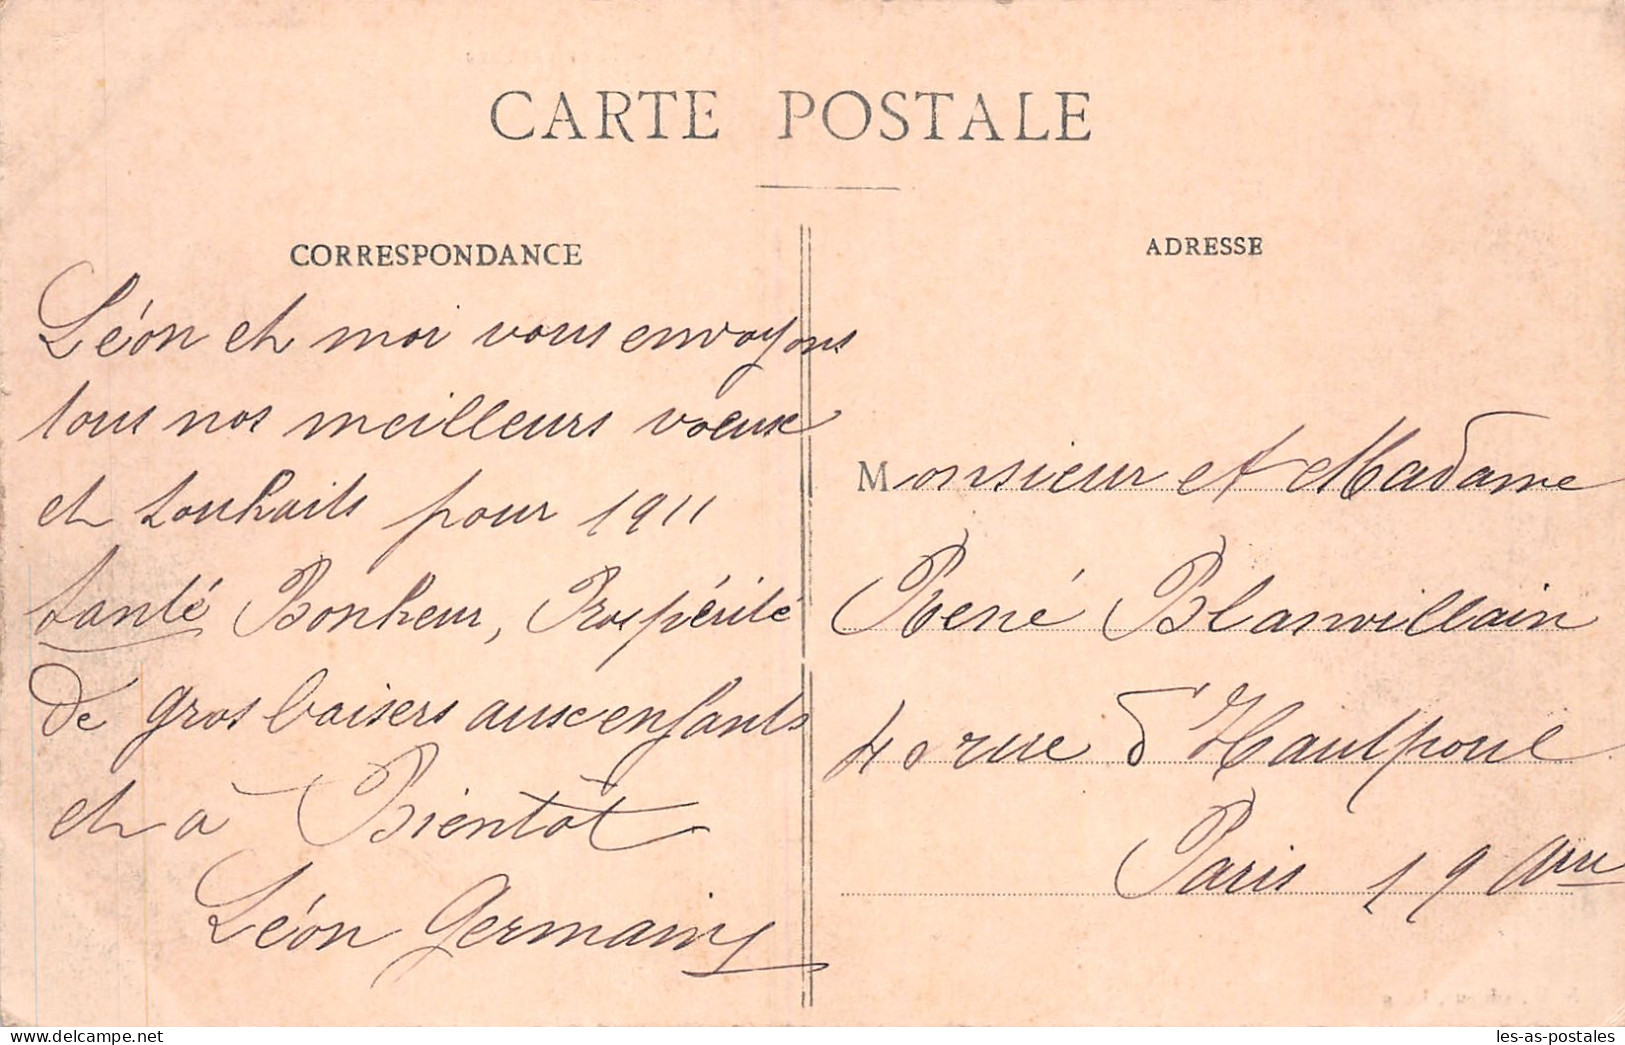 CARTE POSTALE
CORRESPONDANCE
Léon et moi vous envoyons
tous nos meilleurs vœux
et souhaits pour 1911
Santé Bonheur, Prospérité
de gros baisers aux enfants
et à Bientôt
Léon Germain
ADRESSE
Monsieur et Madame
René Blanvillain
40 rue d'Hautpoul
Paris 19 arr
les-as-postales